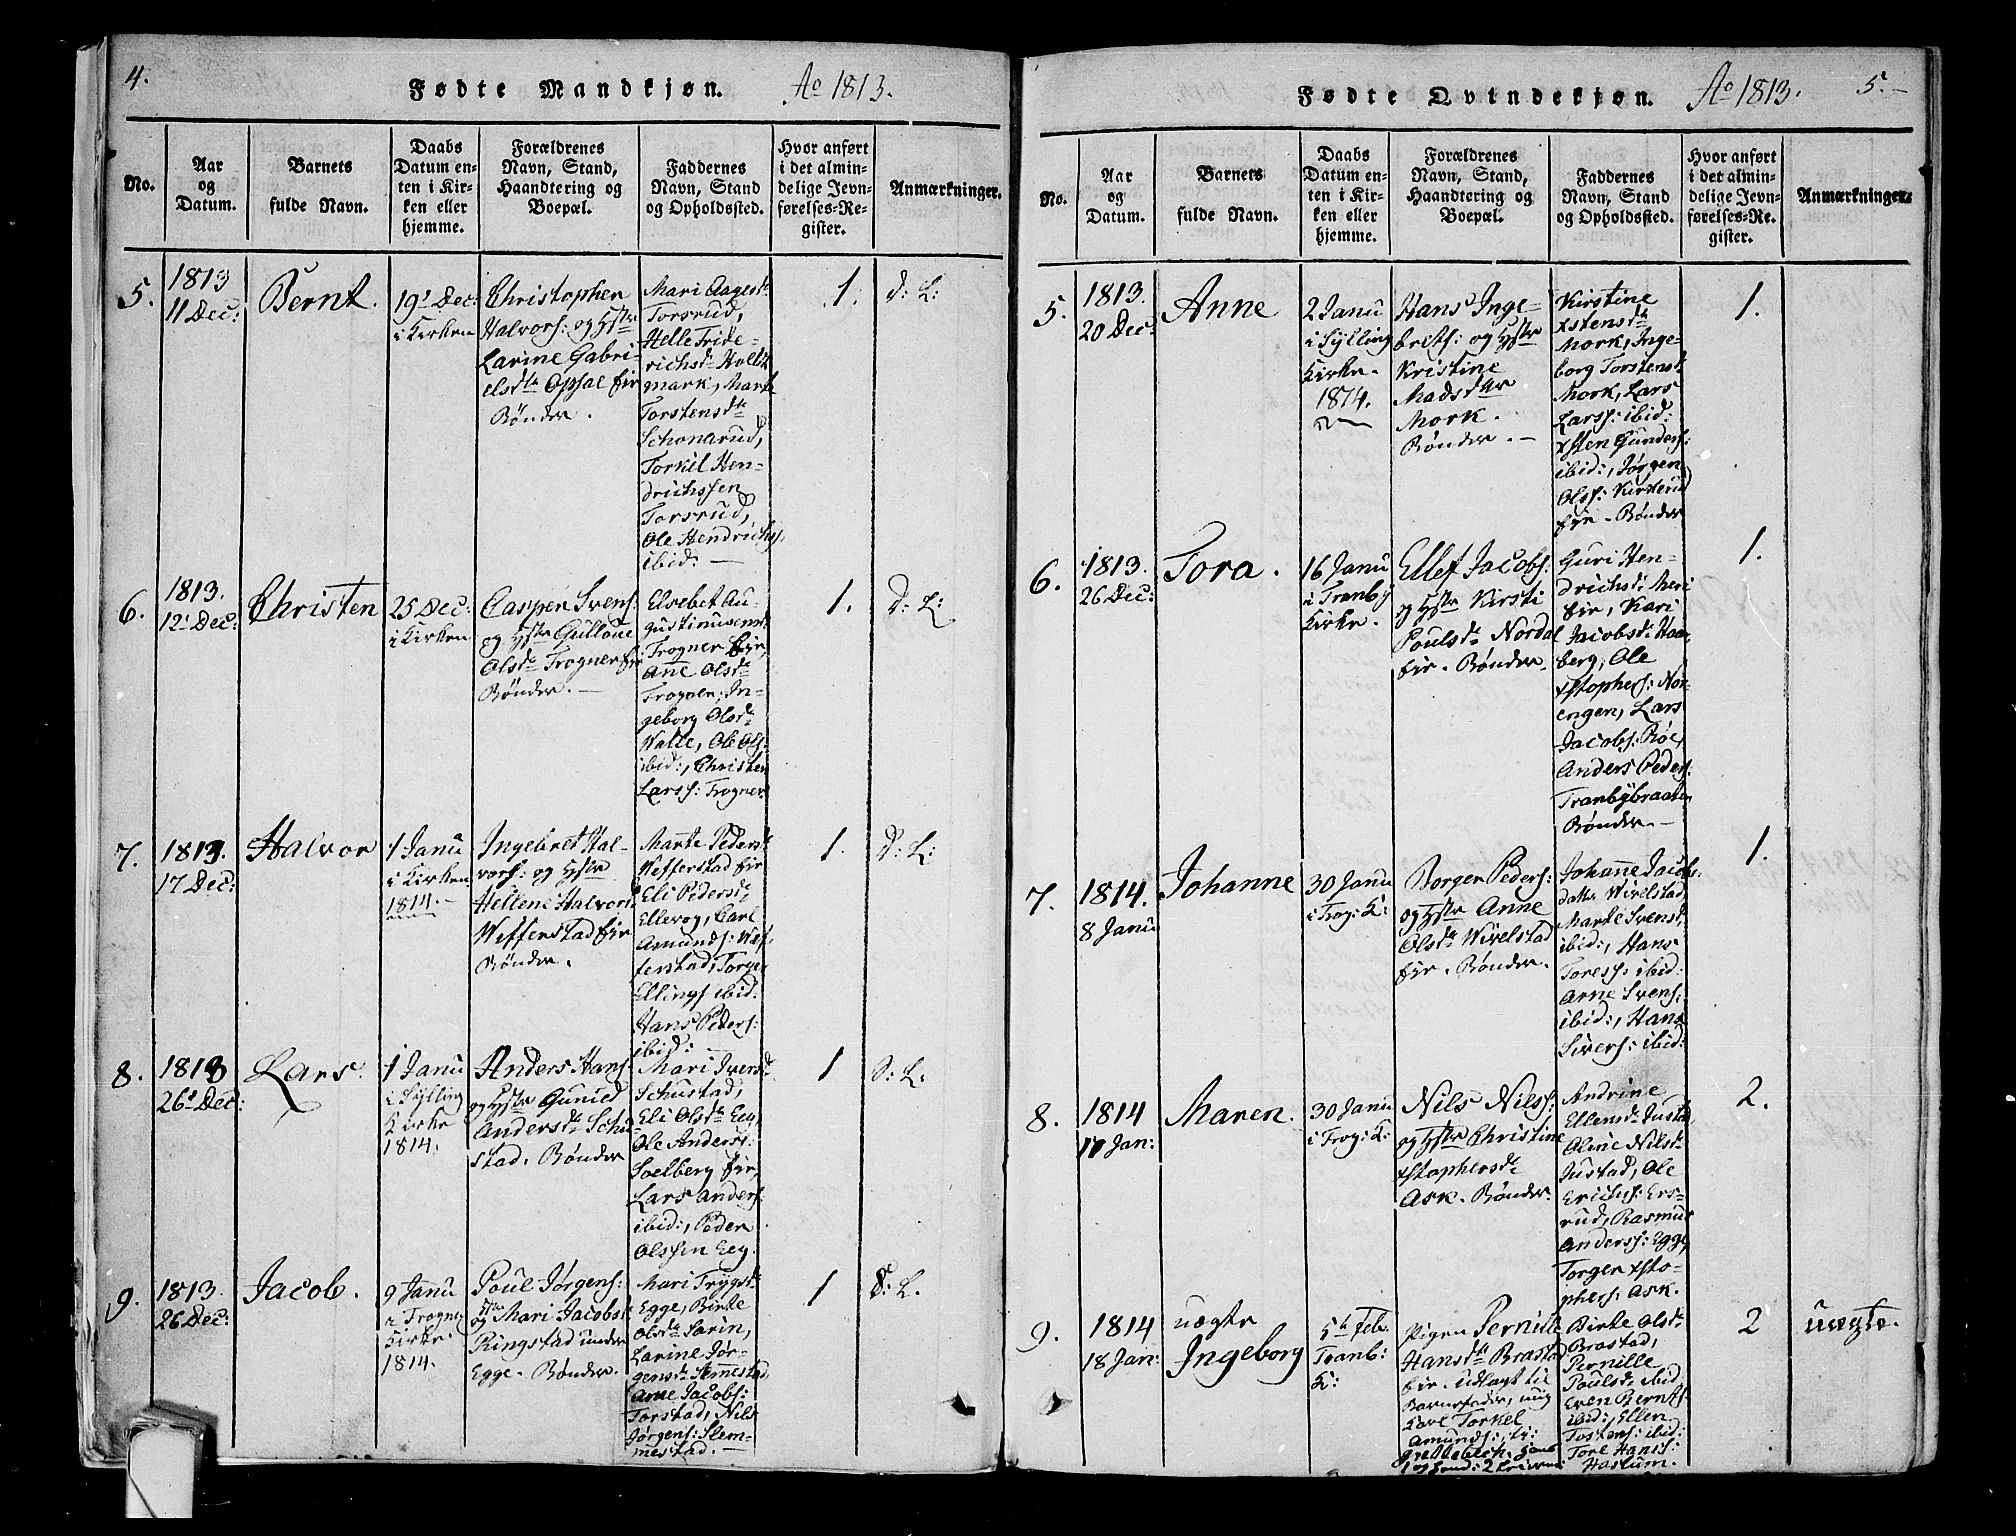 4.
Fødte Mandkjøn. Ao 1813.
No.
Aar
og
Datum.
Barnets
fulde Navn.
Daabs
Datum en-
ten i Kir-
ken eller
hjemme.
Forældrenes
Navn, Stand,
Haandtering og
Boepæl.
Faddernes
Navn, Stand
og Opholdssted.
Hvor anført
i det almin-
delige Jevn-
førelses-Re-
gister.
Anmærkninger.
5.
1813
11 Dec:
Bernt.
19' Dec:
i Kirken
Christopher
Halvors: og Hstr
Larine Gabri-
elsdtr Opsal Eier
Bønder.
Mari Aagesdtr
Torsrud,
Helle Fride-
richsdtr Holtt
mark, Marte
Torstensdtr
Schonerud,
Torkil Hen-
drichssen
Torsrud,
Ole Hendrichs.
ibid: —
1.
D: L:
6.
1813.
12' Dec:
Christen
25 Dec:
i Kirken
Casper Svens:
og Hstr Gulloue
Olsdtr Trogner Eier
Bønder. —
Elsebet Au-
gustinusensdtr
Trogner Eier,
Anne Olsdtr
Trogner, In-
geborg Olsdtr
Walle, Ole Ols:
ibid:, Christen
Larss: Trogner
1.
D: L:
7.
1813.
17 Dec:
Halvor
1 Janu
i Kirken
1814. —
Ingebret Hal-
vors: og Hstr
Hellene Halvors
Wefferstad Eier
Bønder.
Marte Pedersdtr
Wefferstad Eier
Eli Pedersdtr
Ellevog, Carl
Amunds: Wef-
ferstad, Torger
Ellings ibid.
Hans Peders:
ibid: —
1.
D: L:
8.
1813
26' Dec:
Lars.
1 Janu
i Sylling
Kirke
1814.
Anders Hans:
og Hstr Gunild
Andersdtr Schu
stad. Bønder
Mari Iversd
Schustad,
Eli Olsdtr Eeg,
Ole Anders:
Soelberg Eier,
Lars Anders
ibid:, Peder
Olssen Eeg.
1
D: L:
9.
1813.
26 Dec:
Jacob.
9 Janu
i Trogn:
Kirke.
1814.
Poul Jørgens:
og Hstr Mari Jacobsd
Ringstad under
Egge. Bønder.
Mari Trygsdtr
Egge, Birte
Olsdtr Sarin,
Larine Jør-
gensdtr Slemmestad,
Arne Jacobs:
Torstad, Nils
Jørgens: Slem-
mestad. —
1
D: L.
Fødte Qvindekjøn. Ao 1813. 5. —
No.
Aar
og
Datum.
Barnets
fulde Navn.
Daabs
Datum en-
ten i Kir-
ken eller
hjemme.
Forældrenes
Navn, Stand,
Haandtering og
Boepæl.
Faddernes
Navn, Stand
og Opholdssted.
Hvor anført
i det almin-
delige Jevn-
førelses-Re-
gister.
Anmærkninger.
5.
1813.
20 Dec:
Anne
2 Janu
i Sylling
Kirke.
1814.
Hans Inge-
brets: og Hstr
Kristine
Madsdtr
Mork.
Bønder. —
Kirstine
xstensdtr
Mork, Inge-
borg Torstensd
Mork, Lars
Larss: ibid:
xsten Gunders:
ibid:, Jørgen
Olss: Kirkerud
Eier - Bønder
1.
6.
1813.
26 Dec:
Tora.
16 Janu
i Tranby
Kirke.
Ellef Jacobs:
og Hstr Kirsti
Poulsdtr Nordal
Eier. Bønder.
Guri Hen-
drichsd: Meri
Eier, Kari
Jacobsdtr Haa
berg, Ole
xstophers: Nor-
engen, Lars
Jacobs: Røe,
Anders Peders:
Tranbybraaten
Bønder. —
1.
7.
1814.
8 Janu
Johanne
30 Janu
i Trog: K:
Borger Peders:
og Hstr Anne
Olsdtr Wivelstad
Eier. Bønder.
Johanne Jacobs
datter Wivelstad,
Marte Svensd
ibid:, Hans
Toress: ibid:
Arne Svens:
ibid:, Hans
Sivers: ibid:
1.
8.
1814
17 Jan:
Maren.
30 Janu
i Trog: K:
Nils Nilss:
og Hstr Christine
xstophersdtr
Ask. Bønder.
Andrine
Ellensdtr Justad
Oline Nilsdtr
Justad, Ole
Erichs: Ers-
rud, Rasmus
Anderss: Egge,
Torger xsto-
phers: Ask.
2.
9.
1814
18 Jan:
uægte
Ingeborg
5te Feb:
Tranb:
K:
Pigen Pernille
Hansdtr Brastad
Eier. udlagt til
Barnefader, ung
Karl Torkel
Amunds:
Birte Olsdtr
Brastad,
Pernille
Poulsdtr ibid,
Even Bernts
ibid:, Ellen
Tostens: ibid:
Tore Hanss:
Haslum.
2
uægte.